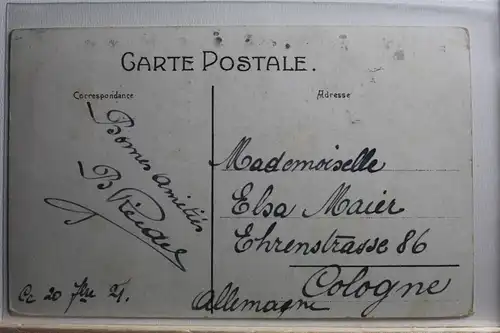 CARTE POSTALE.
Correspondance
Adresse
Bonnes amitiés
Mademoiselle
Elsa Maier
Ehrenstrasse 86
Cologne
Allemagne
20 21.